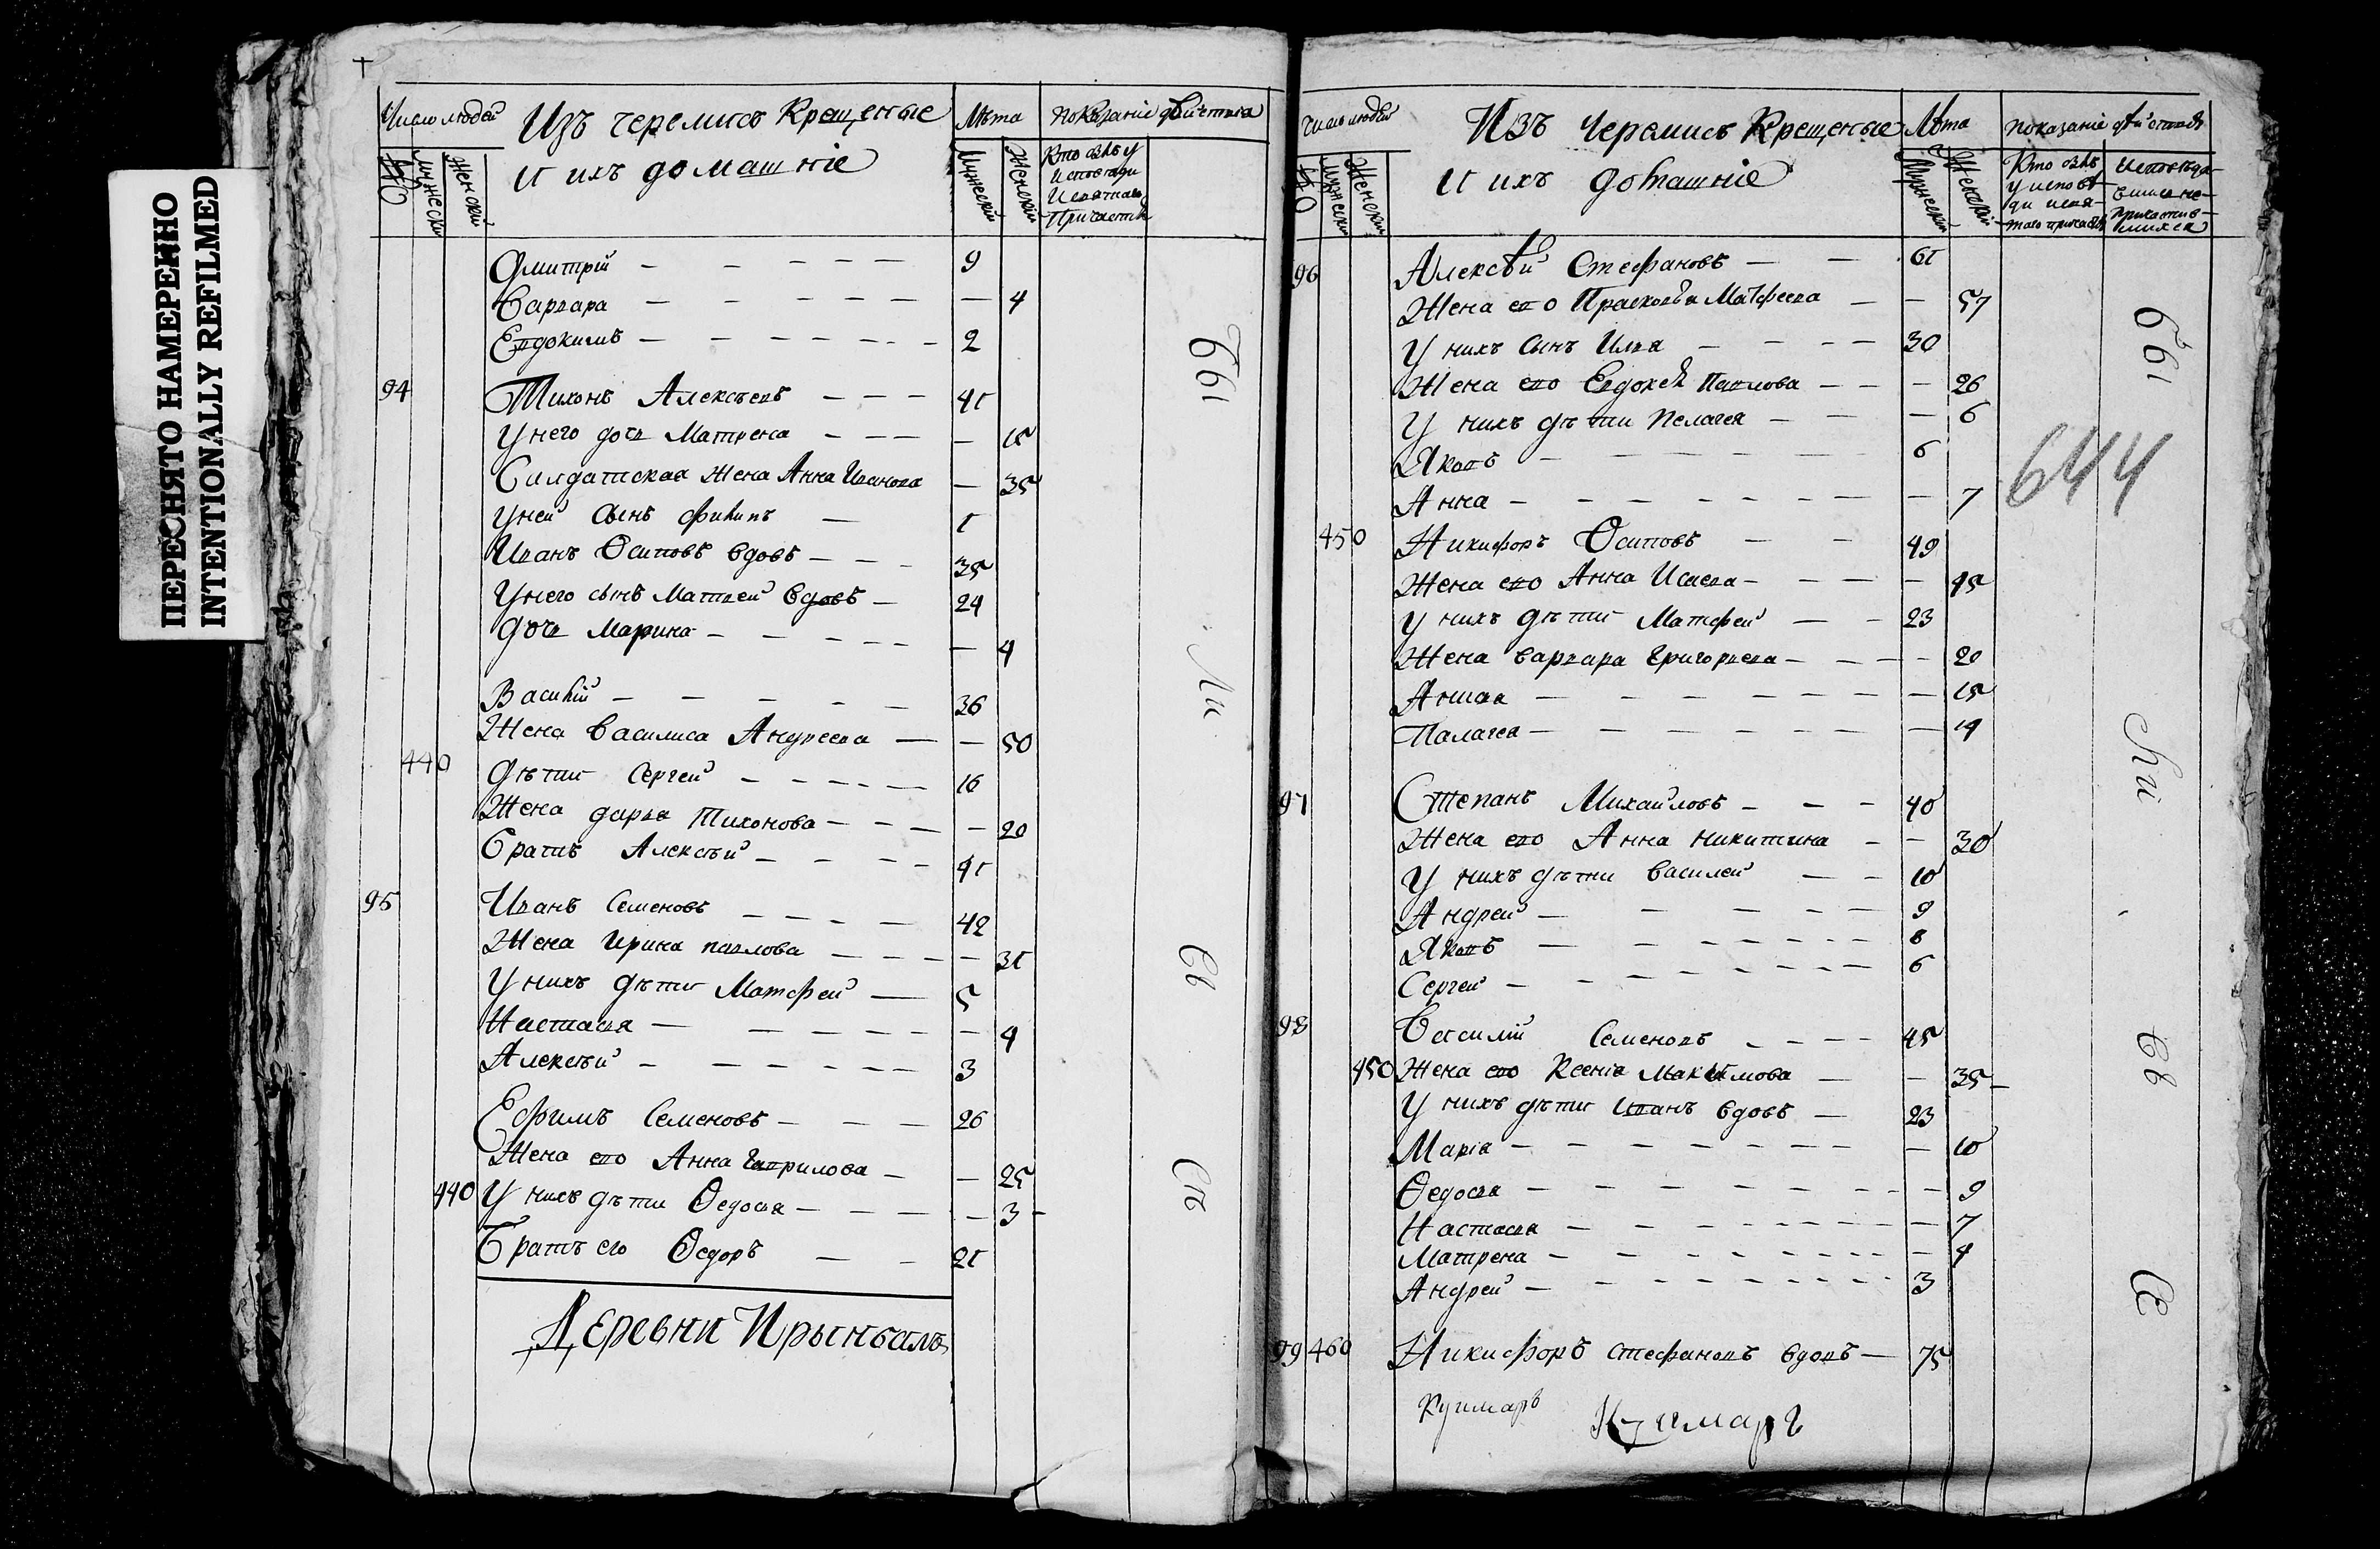 ПЕРЕСНЯТО НАМЕРЕННО
INTENTIONALLY REFILMED
Число людей
Изъ черемисъ Крещеные
и ихъ домашніе
Лѣта
показаніе дѣйства
Мужескій
Женскій
Мужескій
Женскій
Кто былъ у
исповеди
и святаго
Причастія
Дмитрій — — — — — 9
Варвара — — — — — — 4
Евдокимъ — — — — — 2
94 Тихонъ Алексѣевъ — — — 41
У него дочь Матрена — — — — 15
Салдатская жена Анна Иванова — 35
У ней сынъ Филипъ — 1
Иванъ Осиповъ вдовъ — — — 35
У него сынъ Матвей вдовъ — 24
Дочь Марина — — — — — — 4
Василій — — — — — 36
Жена Василиса Андреева — — 50
440 Дѣти Сергей — — — — 16
Жена дарья Тихонова — — — — 20
Братъ Алексѣй — — — — 41
95 Иванъ Семеновъ — — — — 42
Жена Ирина павлова — — — — — 31
У нихъ дѣти Матфей — 5
Настасья — — — — — — 4
Алексѣй — — — — — — 3
Ефимъ Семеновъ — — — 26
Жена ево Анна Гаврилова — — 25
440 У нихъ дѣти Ѳедосья — — — — 3 —
Братъ его Ѳедоръ — — 21
Деревни Ирынъ
Число людей
Изъ Черемисъ Крещеные
и ихъ домашніе
Лѣта
показаніе дѣйства
Мужескій
Женскій
Мужескій
Женскій
Кто былъ
у исповѣ
ди и свя
таго причастія
96 Алексѣй Стефановъ — — 61
Жена ево Прасковья Матфеева — — 57
У нихъ сынъ Илья — — — — 30
Жена ево Евдокея Павлова — — — 26
У нихъ дѣти Пелагея — — — 6
Яковъ — — — — — — 6
Анна — — — — — — — — 7
644
450 Никифоръ Осиповъ — — 49
Жена ево Анна Исаева — — — — 45
У нихъ дѣти Матфей — — 23
Жена Варвара Григорьева — — — — 20
— — — — — — — 15
Палагея — — — — — — — — 14
97 Степанъ Михайловъ — — — 40
Жена ево Анна Никитина — — 30
У нихъ дѣти Василей — — 10
Андрей — — — — — 9
Яковъ — — — — — — 8
Сергей — — — — — — — 6
98 Василій Семеновъ — — — — 45
450 Жена ево Ксенія Максимова — — 35 —
У нихъ дѣти Иванъ вдовъ — 23
Марія — — — — — — — — — 10
Ѳедосья — — — — — — — — — 9
Настасья — — — — — — — — — 7
Матрена — — — — — — — — — 4
Андрей — — — — — — — — 3
99 460 Никифоръ Стефановъ вдовъ — 75